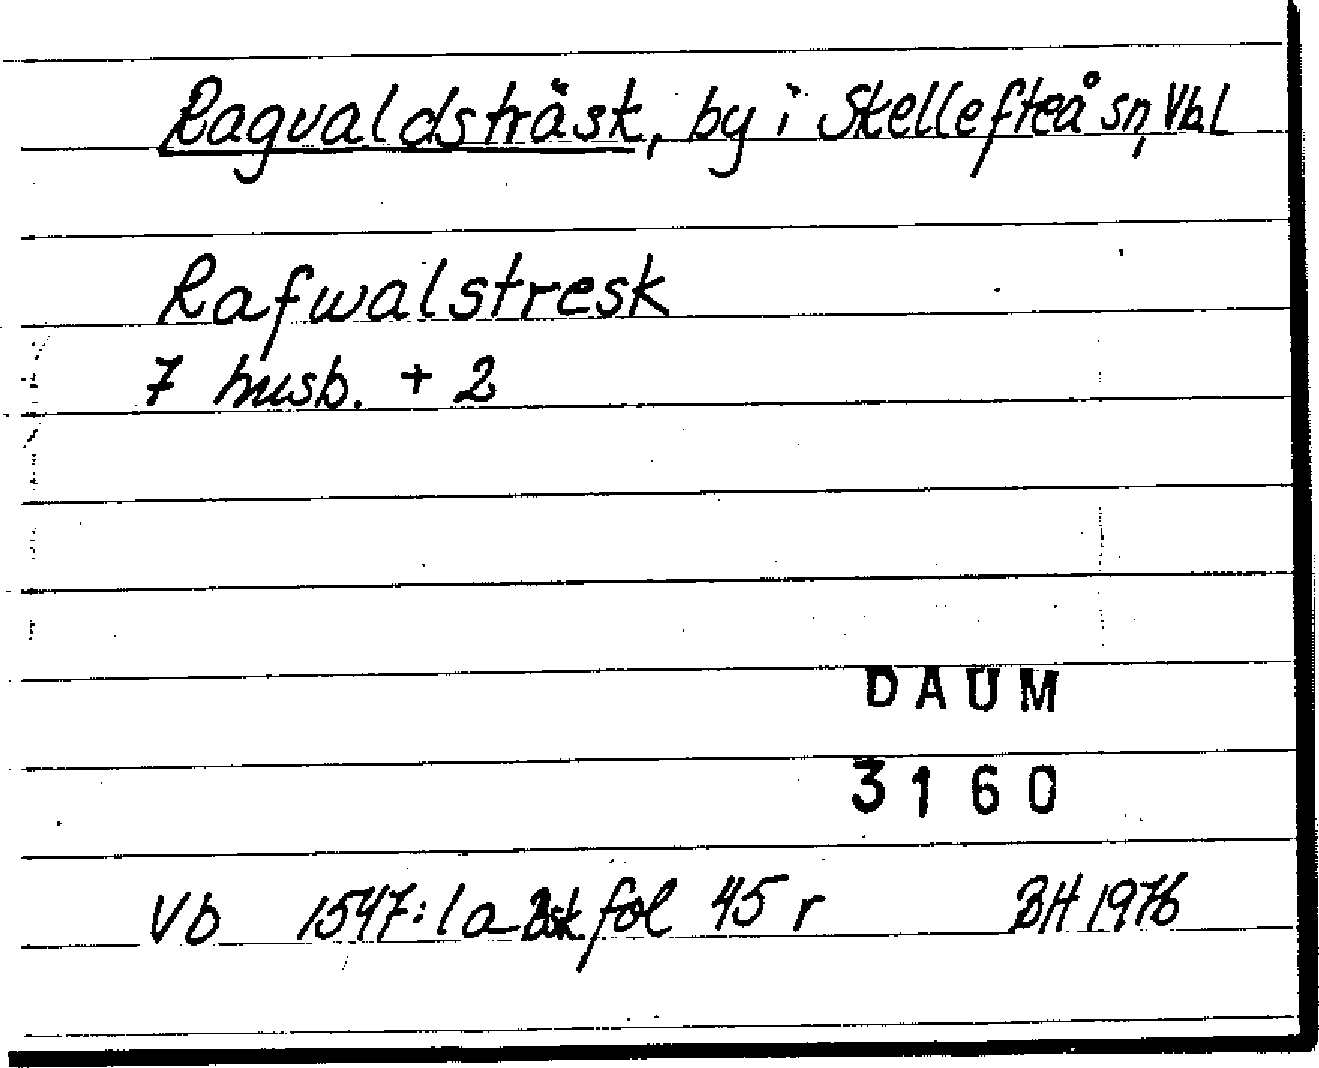 Ragvaldsträsk, by i Skellefteå sn, Vbl
Rafwalstresk
7 husb. + 2
DAUM
3160
Vb 1547:1a Bsk fol 45 r BH 1976